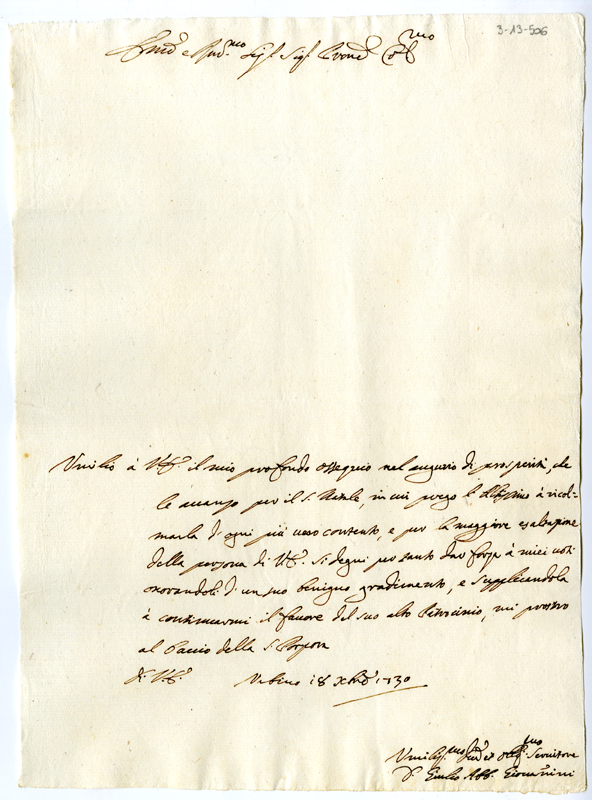 3-13-506
Em.o e Rev.mo Sig.r Sig.r Prone Col.mo
Umilio à V.E. il mio profondo ossequio nel augurio di prosperità, che
le avanzo per il S. Natale, in cui prego l'Altissimo à ricol-
marla d'ogni più vero contento, e per la maggiore esaltazione
della persona di V.E. Si degni per tanto dar forza à miei voti
onorandoli d'un suo benigno gradimento, e supplicandola
à continuarmi il favore del suo alto Patrocinio, mi prostro
al bacio della S. Porpora
Di V.E. Urbino 18 Xbre 1730
Umiliss.mo Dev.o Obl.mo Servitore
D. Emilio Abb. Giovannini